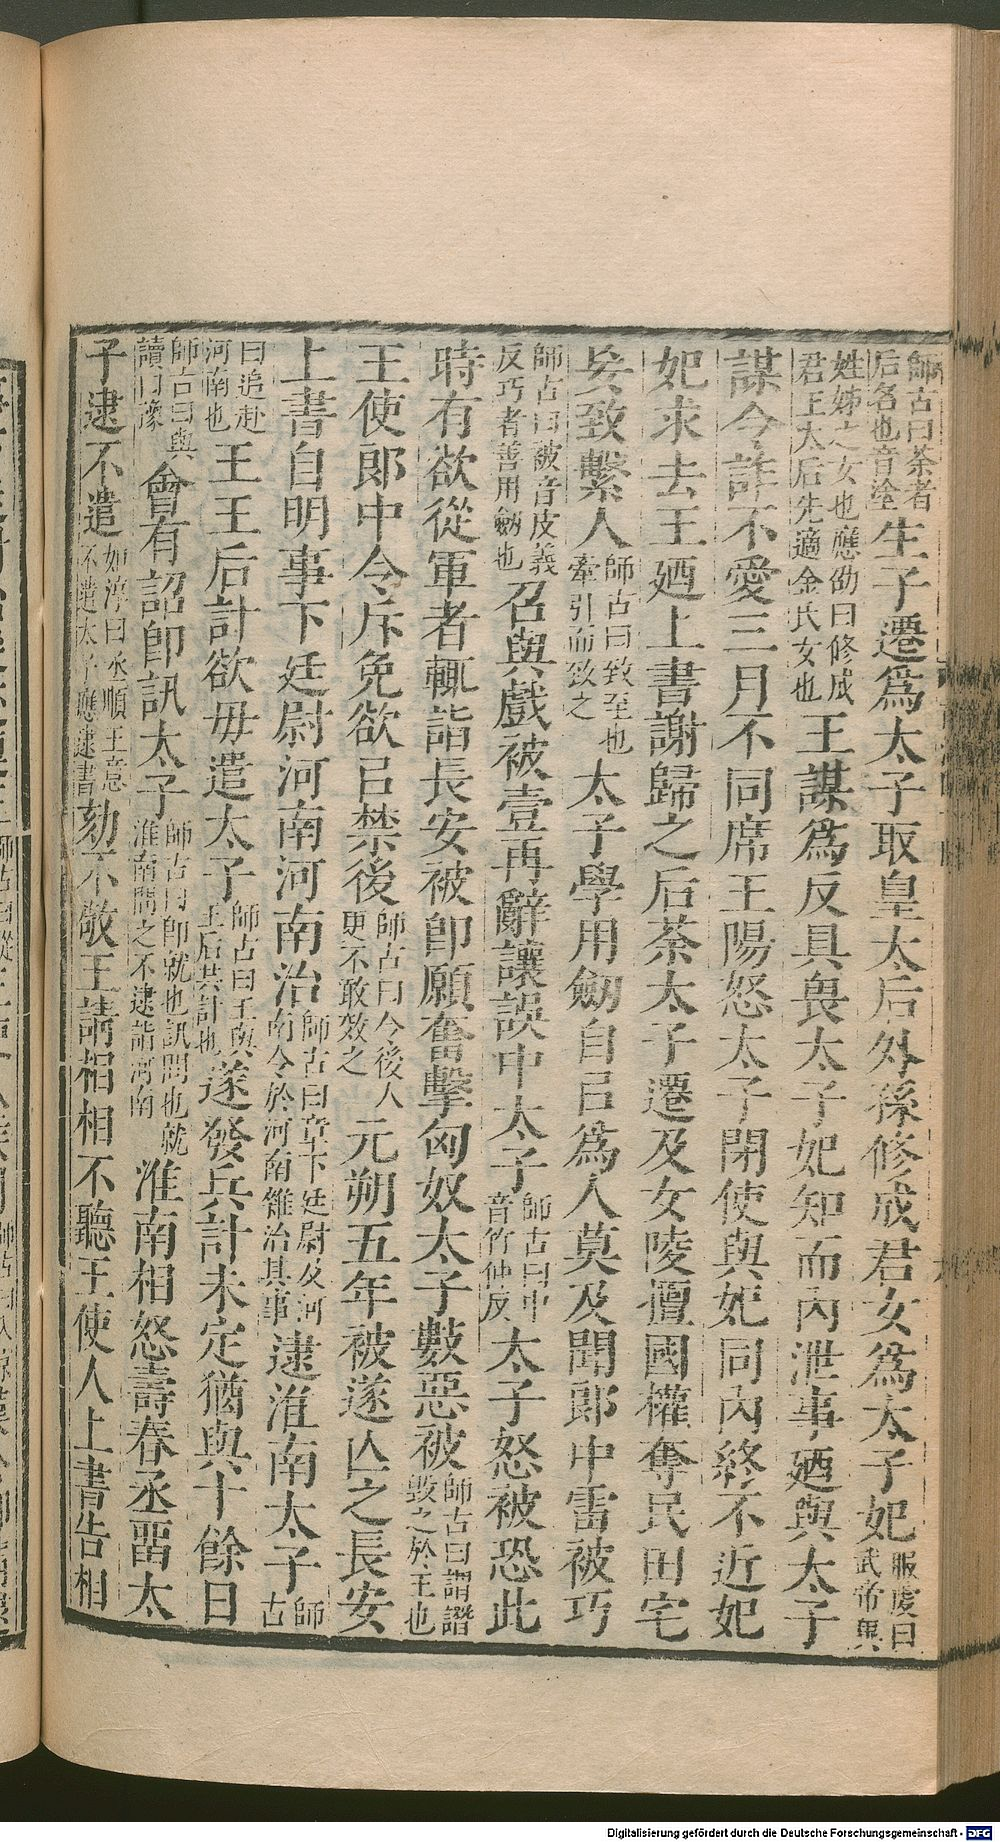 師古曰荼者后名也音塗生子遷爲太子取皇太后外孫修成君女爲太子妃服虔曰武帝異
姓姊之女也應劭曰修成君上太后先適金氏女也王謀爲反具畏太子妃知而內泄事廼與太子
謀令詐不愛三月不同席王陽怒太子閉使與妃同內終不近妃
妃求去王廼上書謝歸之后荼太子遷及女陵擅國權奪民田宅
妄致繫人師古曰致至也牽引而致之太子學用劒自㠯爲人莫及聞郎中雷被巧
師古曰被音皮義反巧者善用劒也召與戲被壹再辭讓誤中太子師古曰中音竹仲反太子怒被恐此
時有欲從軍者輒詣長安被即願奮擊匈奴太子數惡被師古曰謂譖毀之於王也
王使郎中令斥免欲㠯禁後師古曰令後人更不敢效之元朔五年被遂亾之長安
上書自明事下廷尉河南河南治師古曰章下廷尉及河南令於河南雜治其事逮淮南太子師古
曰追赴河南也王王后計欲毋遣太子師古曰王與王后共計也遂發兵計未定猶與十餘日
師古曰與讀曰豫會有詔即訊太子師古曰即就也訊問也就淮南問之不逮詣河南淮南相怒壽春丞畱太
子逮不遣如淳曰丞順王意不遣太子應逮書劾不敬王請相相不聽王使人上書告相
Digitalisierung gefördert durch die Deutsche Forschungsgemeinschaft - DFG